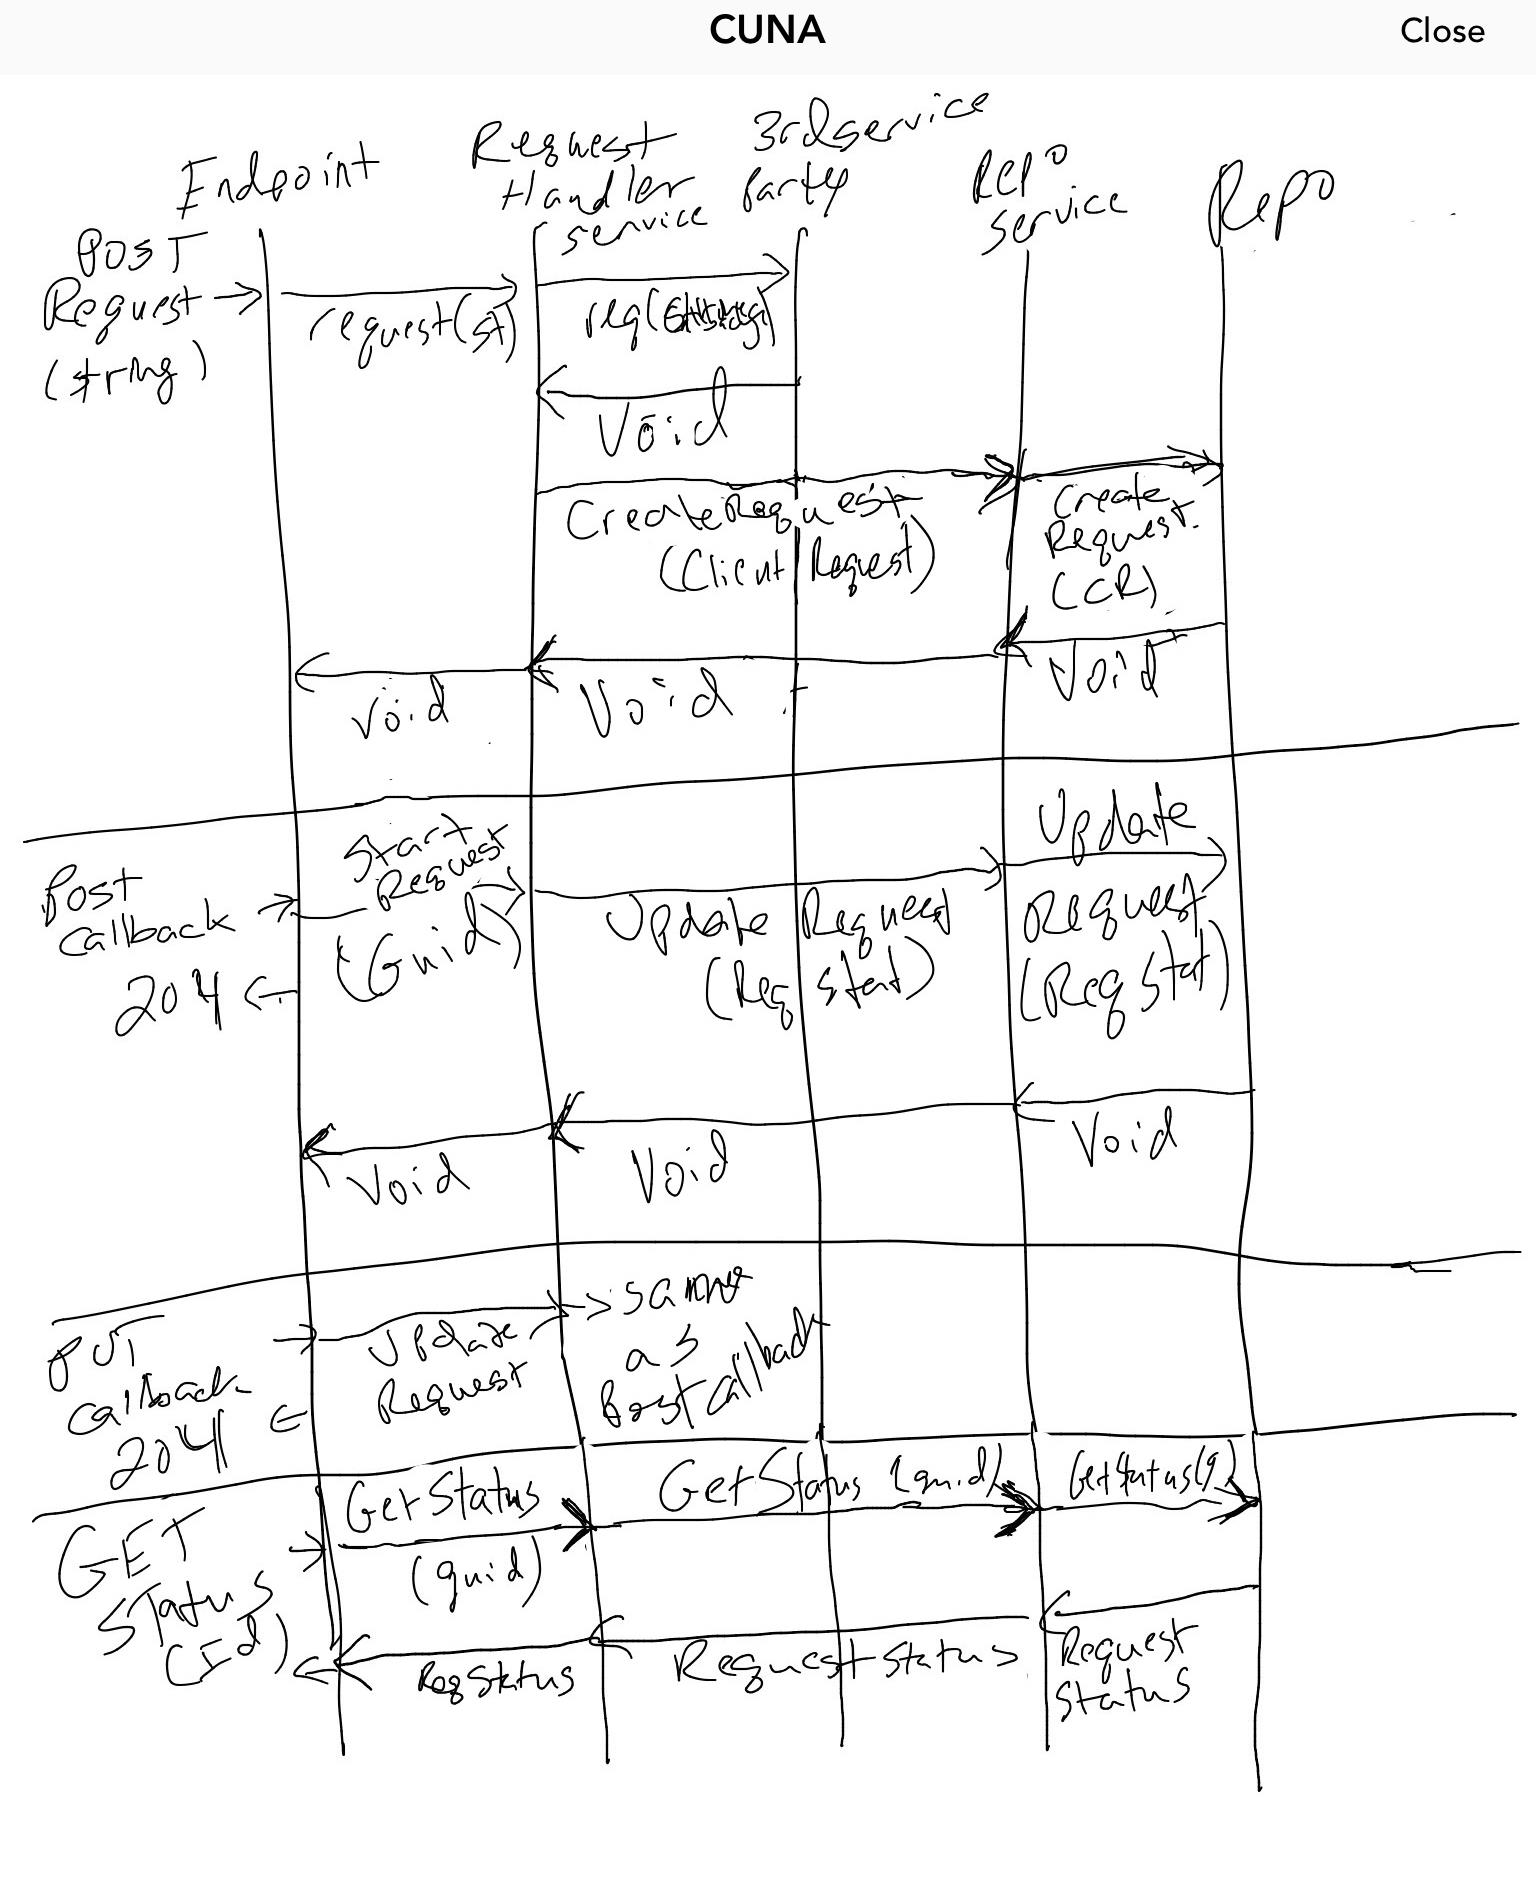 CUNA
Close
Endpoint
Request
Handler
service
3rd service
Party
Repo
service
Repo
POST
Request
(string)
request(st)
req(
Void
CreateRequest
(Client Request)
Create
Request.
(CR)
Void
Void
Void
Post
Callback
204
Start
Request
(Guid)
Update Request
(Req stat)
Update
Request
(Req Stat)
Void
Void
Void
PUT
Callback
204
Update
Request
same
as
Post callback
GET
Status
(Id)
Get Status
(guid)
Get Status (guid)
Get Status(g)
Req Status
Request status
Request
Status